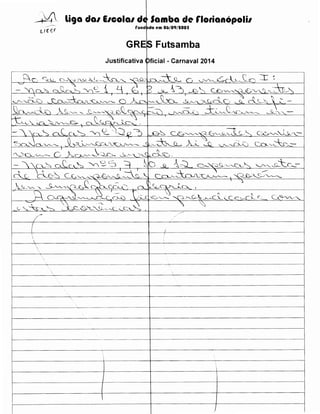 LIESF
Liga das Escolas de Samba de Florianópolis
Fundada em 06/09/2002
GRES Futsamba
Justificativa Oficial - Carnaval 2014
Ao se apresentar perante o módulo I:
- Nas alas nº 1, 4, 6, 8 e 13, os componentes
não cantaram o samba enredo e desfi-
lando sem empolgação, não tinham en-
tusiasmo, alegria.
- Nas alas nº 2 e 3, os componentes conver-
savam, brincavam entre si e não canta-
vam o samba enredo.
- Nas alas nº 5, 7, 10 e 12 apenas meta-
de dos componentes cantaram, porém
sem empolgação, alegria.
A agremiação ficou prejudicada com
estas ocorrências.